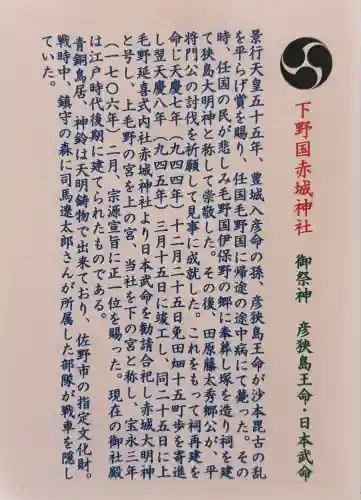 下野国赤城神社　御祭神　彦狭島王命・日本武命
景行天皇五十五年、豊城入彦命の孫、彦狭島王命が沙本毘古の乱
を平らげ賞を賜り、任国毛野国に帰途の途中病にて薨った。その
時、任国の民が悲しみ毛野国伊保野の郷に奉葬し塚を造り祠を建
て狭島大明神と称して崇敬した。その後、田原藤太秀郷公が、平
将門公の討伐を祈願して見事に成就した。これをもって祠再建を
命じ天慶七年（九四四年）十二月二十五日免田畑十五町歩を寄進
し翌天慶八年（九四五年）三月十五日に竣工し、同二十五日に上
毛野延喜式内社赤城神社より日本武命を勧請合祀し赤城大明神
と号し、上毛野の宮を上の宮、当社を下の宮と称し、宝永三年
（一七〇六年）二月、宗源宣旨に正一位を賜った。現在の御社殿
は江戸時代後期に建てられたものである。
青銅鳥居、神鈴は天明鋳物で出来ており、佐野市の指定文化財。
戦時中、鎮守の森に司馬遼太郎さんが所属した部隊が戦車を隠し
ていた。